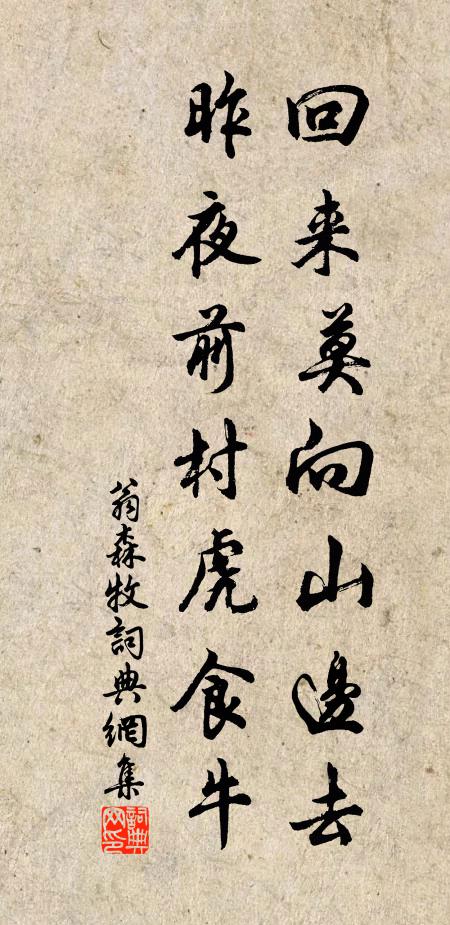 回来莫向山邊去
昨夜前村虎食牛
翁森牧詞典網集
詞典网印